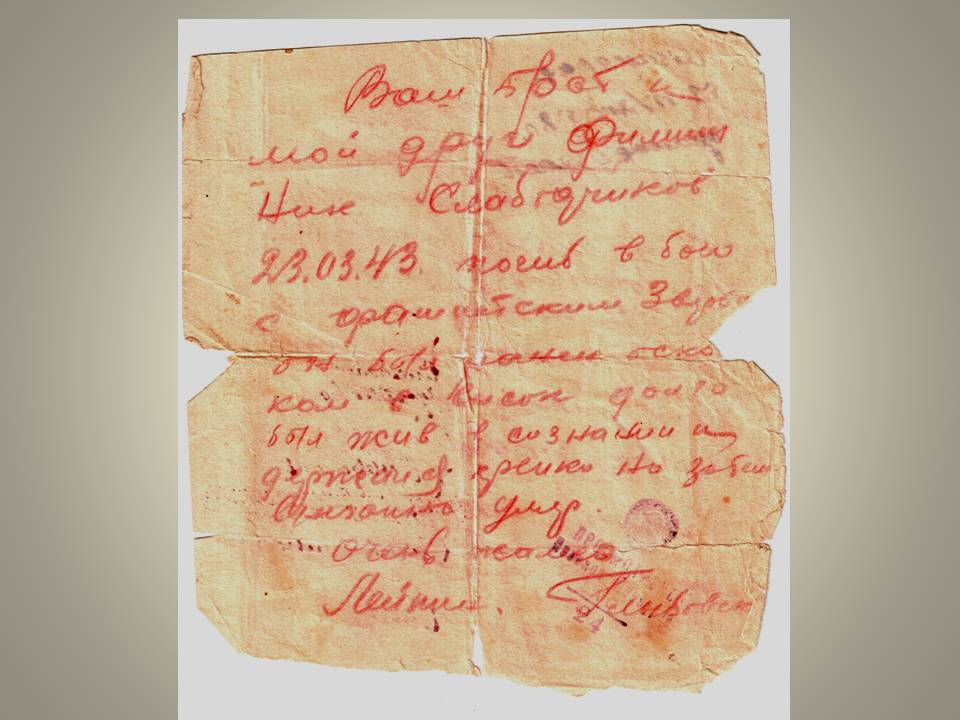 Ваш брат и
мой друг Филипп
Ник Слабодчиков
23.03.43. погиб в бою
с фашистским Зверь
он был
ком в висок долго
был жив в сознании и
держался крепко но затем
умер.
очень жалко
Лейтен.
24